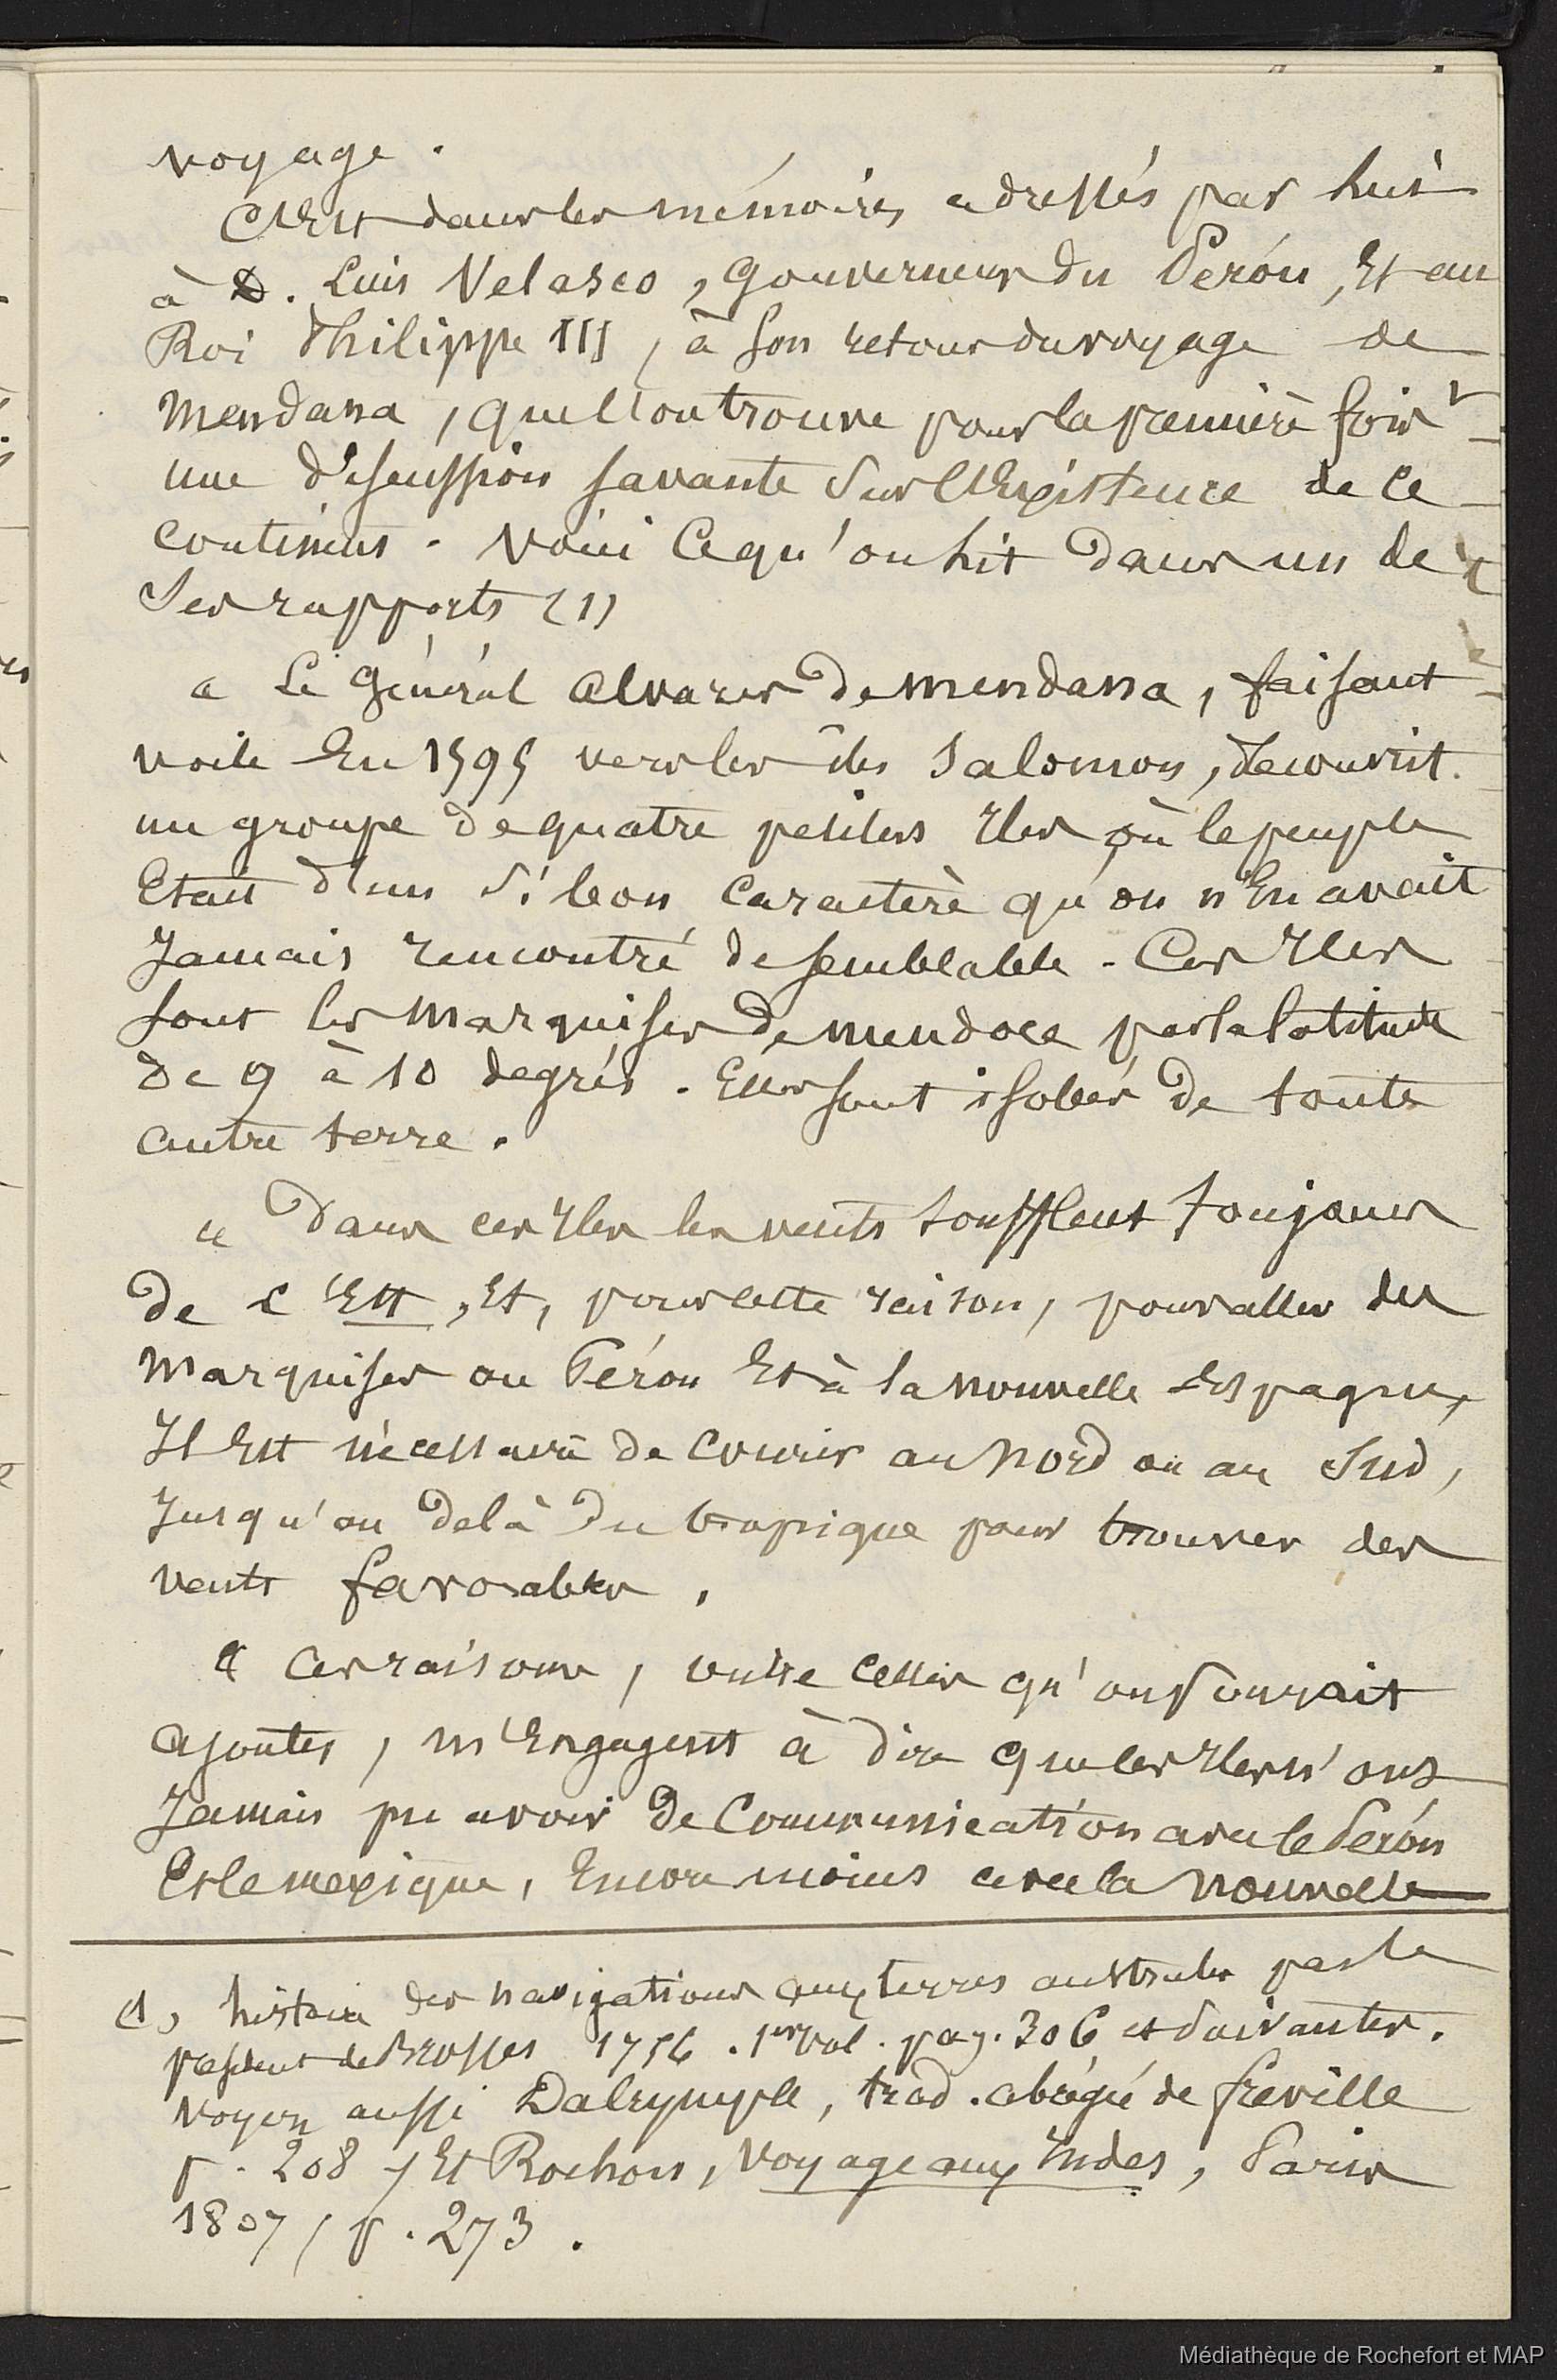 voyage.
C'est dans les mémoires adressés par lui
à D. Luis Velasco, Gouverneur du Pérou, Et au
Roi Philippe III, à son retour du voyage de
Mendana, que l'on trouve pour la première fois
une discussion savante sur l'Existence de ce
continent. Voici ce qu'on lit dans un de
ses rapports (1)
« Le Général Alvares de Mendana, faisant
voile En 1595 vers les îles Salomon, découvrit
un groupe de quatre petites Iles où le peuple
Etait d'un si bon caractère qu'on n'En avait
Jamais rencontré de semblable. Ces Iles
sont les Marquises de Mendoce par la latitude
de 9 à 10 degrés. Elles sont isolées de toute
autre terre.
« Dans ces Iles les vents soufflent toujours
de l'Est, Et, pour cette raison, pour aller des
Marquises au Pérou Et à la nouvelle Espagne,
Il Est nécessaire de courir au Nord ou au Sud,
Jusqu'au delà du tropique pour trouver des
vents favorables.
« Ces raisons, outre celles qu'on pourrait
ajouter, m'Engagent à dire que les Iles n'ont
Jamais pu avoir de Communication avec le Pérou
Et le mexique, Encore moins avec la Nouvelle
(1) histoire des navigations aux terres australes par le
président de Brosses 1756. 1er vol. pag. 306 et suivantes.
voyez aussi Dalrymple, trad. abrégé de freville
p. 208, Et Rochon, Voyage aux Indes, Paris
1807, p. 273.
Médiathèque de Rochefort et MAP